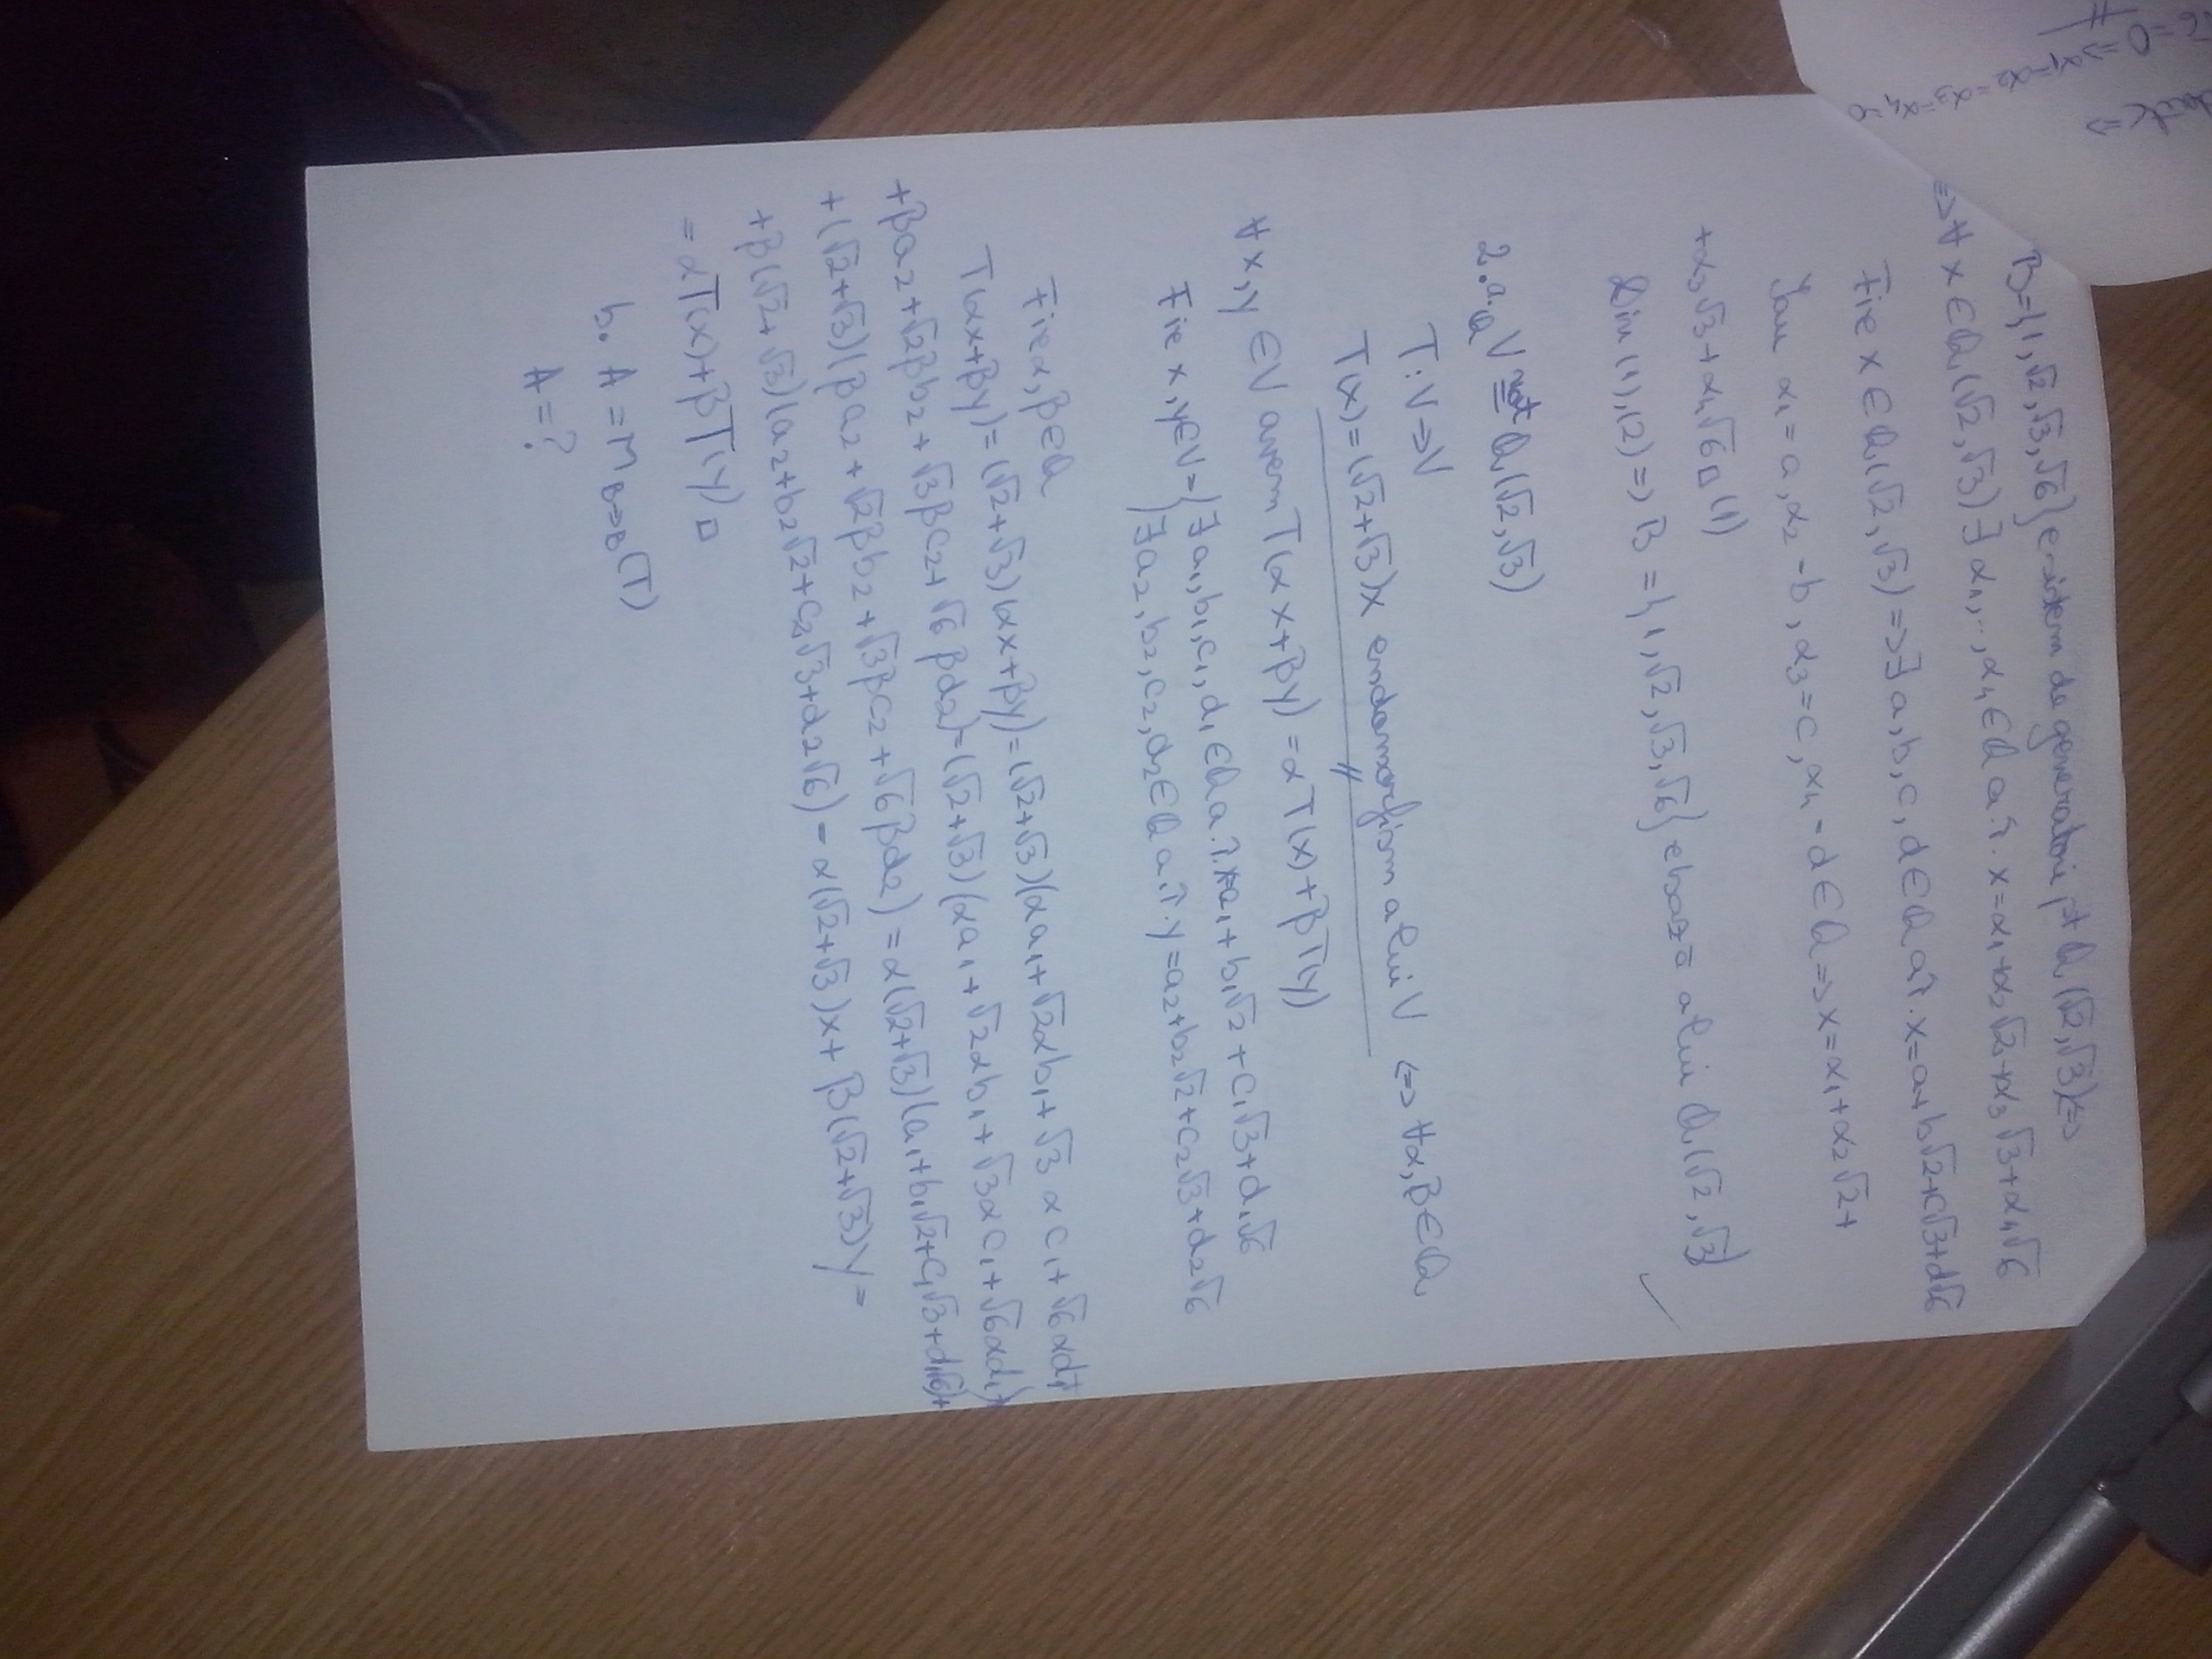 B={1,√2,√3,√6} e sistem de generatori pt Q(√2,√3)<=>
<=>∀ x∈Q(√2,√3) ∃ α₁,..,α₄∈Q a.î. x=α₁+α₂√2+α₃√3+α₄√6
Fie x∈Q(√2,√3)=>∃ a,b,c,d∈Q a.î. x=a+b√2+c√3+d√6
Iau α₁=a, α₂=b, α₃=c, α₄=d∈Q=>x=α₁+α₂√2+
+α₃√3+α₄√6□(1)
Din (1),(2)=>B={1,√2,√3,√6} e bază a lui Q(√2,√3)
2.a. V not= Q(√2,√3)
T:V→V
T(x)=(√2+√3)x endomorfism a lui V <=> ∀α,β∈Q,
∀ x,y∈V avem T(αx+βy)=αT(x)+βT(y)
Fie x,y∈V=>{∃ a₁,b₁,c₁,d₁∈Q a.î. x=a₁+b₁√2+c₁√3+d₁√6
∃ a₂,b₂,c₂,d₂∈Q a.î. y=a₂+b₂√2+c₂√3+d₂√6
Fie α,β∈Q
T(αx+βy)=(√2+√3)(αx+βy)=(√2+√3)(αa₁+√2αb₁+√3αc₁+√6αd₁+
+βa₂+√2βb₂+√3βc₂+√6βd₂)=(√2+√3)(αa₁+√2αb₁+√3αc₁+√6αd₁)+
+(√2+√3)(βa₂+√2βb₂+√3βc₂+√6βd₂)=α(√2+√3)(a₁+b₁√2+c₁√3+d₁√6)+
+β(√2+√3)(a₂+b₂√2+c₂√3+d₂√6)=α(√2+√3)x+β(√2+√3)y=
=αT(x)+βT(y)□
b. A=M_{B→B}(T)
A=?